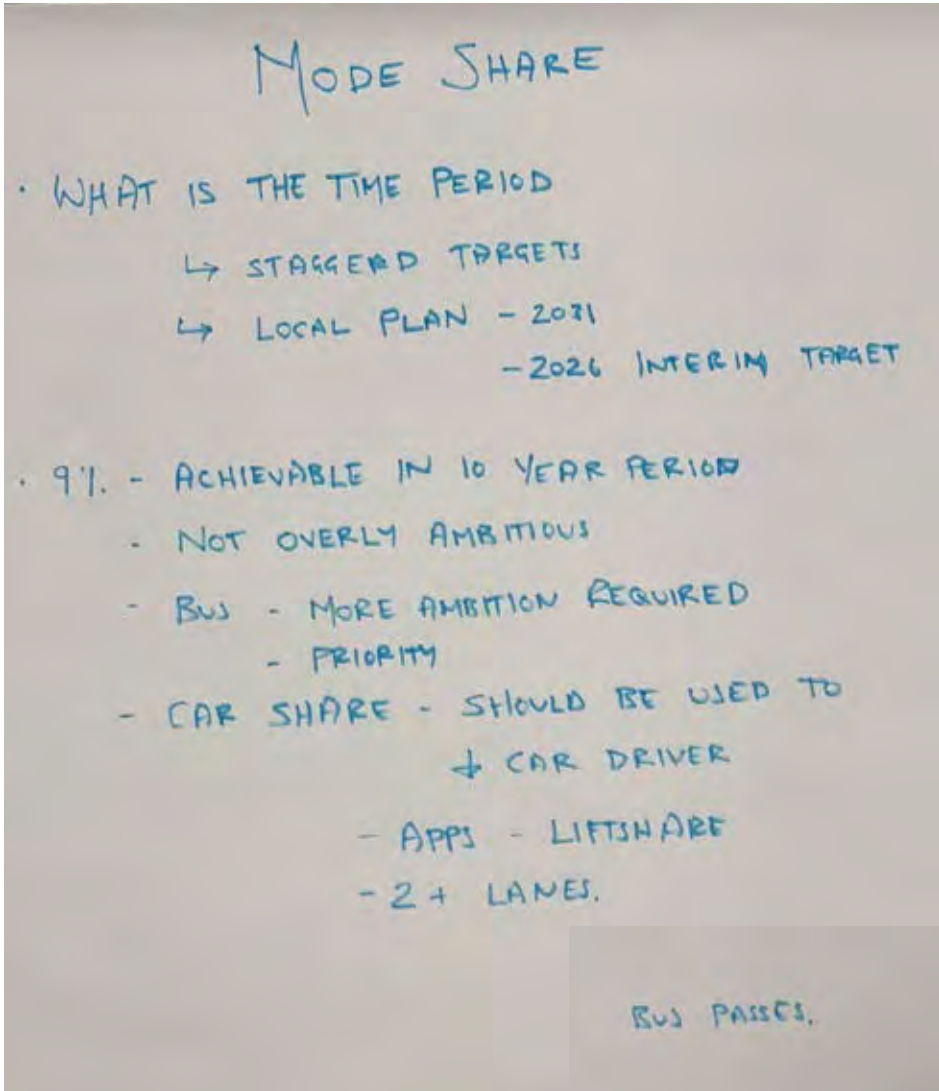 MODE SHARE
· WHAT IS THE TIME PERIOD
↳ STAGGERD TARGETS
↳ LOCAL PLAN - 2031
- 2026 INTERIM TARGET
· 9% - ACHIEVABLE IN 10 YEAR PERIOD
- NOT OVERLY AMBITIOUS
- BUS - MORE AMBITION REQUIRED
- PRIORITY
- CAR SHARE - SHOULD BE USED TO
↓ CAR DRIVER
- APPS - LIFTSHARE
- 2+ LANES.
BUS PASSES.